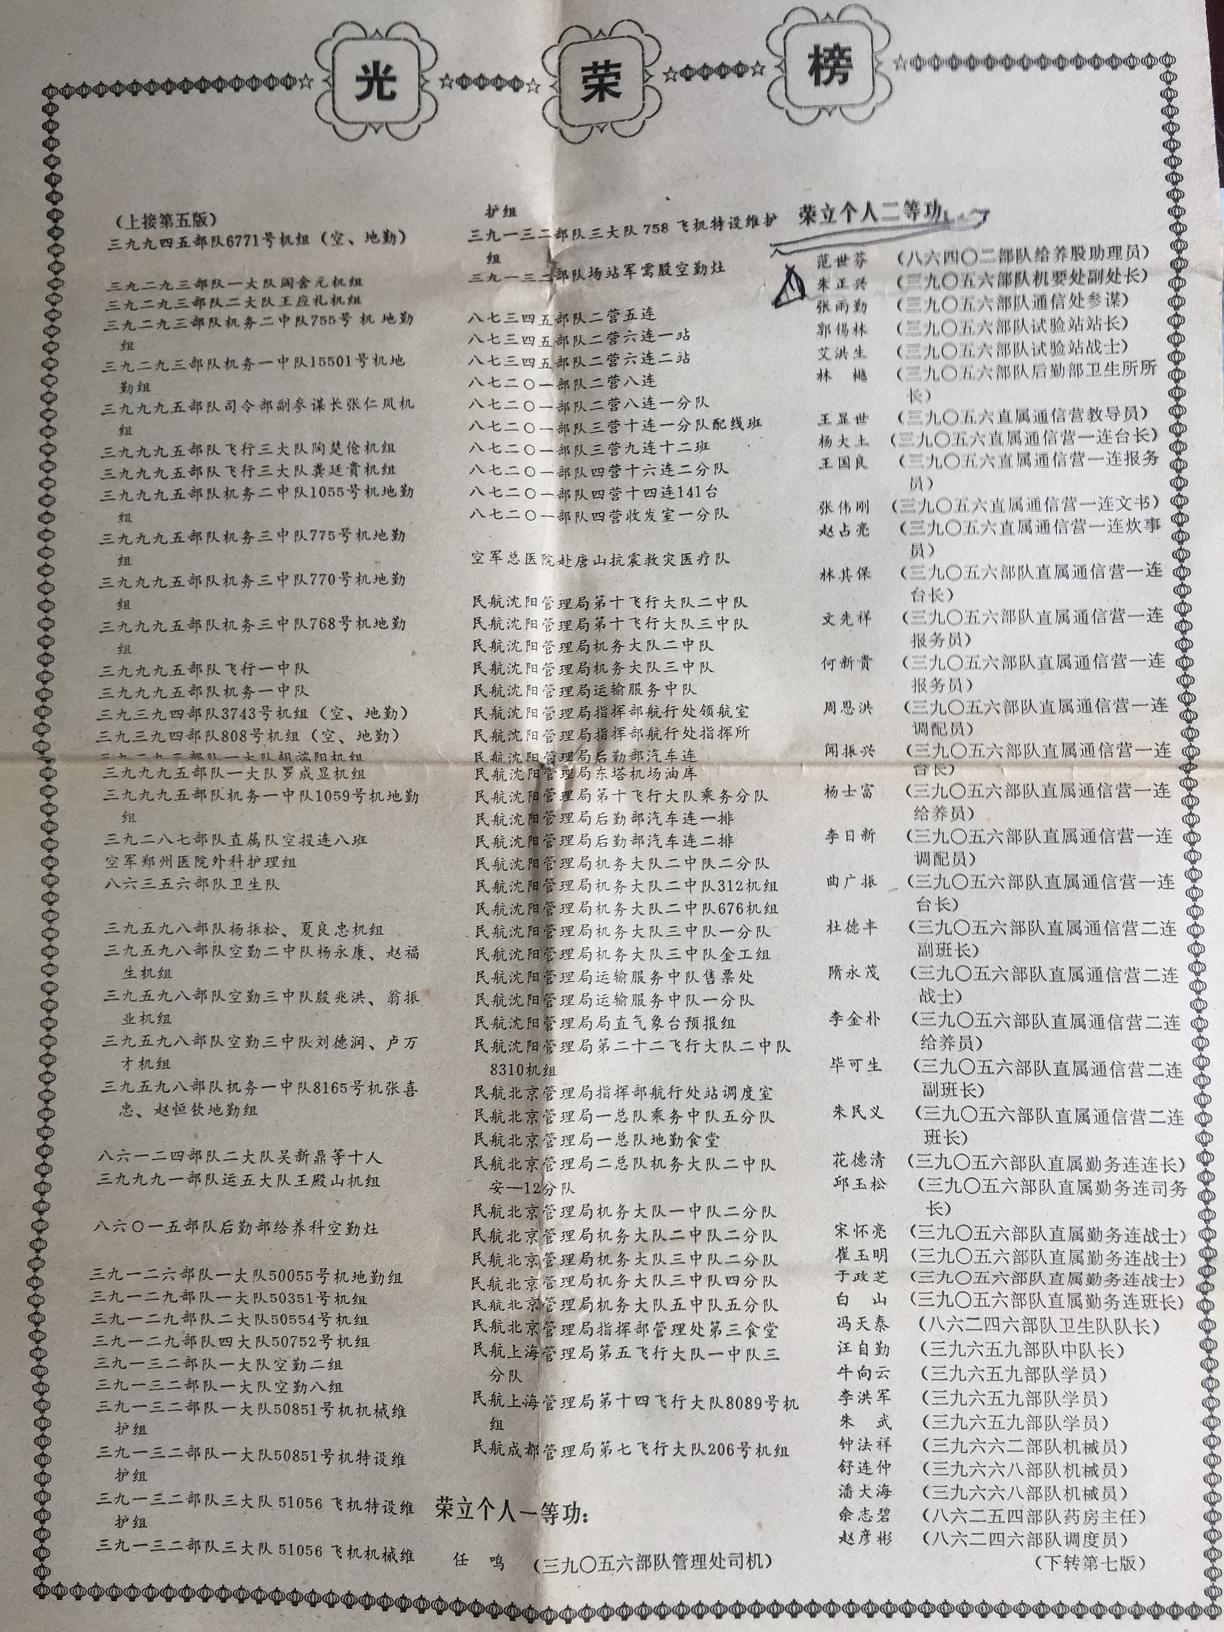 光荣榜
（上接第五版）
三九九四五部队6771号机组（空、地勤）
三九二九三部队一大队阎舍元机组
三九二九三部队二大队王应礼机组
三九二九三部队机务二中队755号 机 地勤
组
三九二九三部队机务一中队15501号机地
勤组
三九九九五部队司令部副参谋长张仁凤机
组
三九九九五部队飞行三大队陶楚伧机组
三九九九五部队飞行三大队龚廷贵机组
三九九九五部队机务二中队1055号机地勤
组
三九九九五部队机务三中队775号机地勤
组
三九九九五部队机务三中队770号机地勤
组
三九九九五部队机务三中队768号机地勤
组
三九九九五部队飞行一中队
三九九九五部队机务一中队
三九三九四部队3743号机组（空、地勤）
三九三九四部队808号机组（空、地勤）
三九九九五部队一大队罗成显机组
三九九九五部队机务一中队1059号机地勤
组
三九二八七部队直属队空投连八班
空军郑州医院外科护理组
八六三五六部队卫生队
三九五九八部队杨振松、夏良忠机组
三九五九八部队空勤二中队杨永康、赵福
生机组
三九五九八部队空勤三中队殷兆洪、翁振
业机组
三九五九八部队空勤三中队刘德润、卢万
才机组
三九五九八部队机务一中队8165号机张喜
忠、赵恒钦地勤组
八六一二四部队二大队吴新鼎等十人
三九九九一部队运五大队王殿山机组
八六〇一五部队后勤部给养科空勤灶
三九一二六部队一大队50055号机地勤组
三九一二九部队一大队50351号机组
三九一二九部队二大队50554号机组
三九一二九部队四大队50752号机组
三九一三二部队一大队空勤二组
三九一三二部队一大队空勤八组
三九一三二部队一大队50851号机机械维
护组
三九一三二部队一大队50851号机特设维
护组
三九一三二部队三大队 51056 飞机特设维
护组
三九一三二部队三大队 51056 飞机机械维
护组
三九一三二部队三大队 758 飞机特设维护
组
三九一三二部队场站军需股空勤灶
八七三四五部队二营五连
八七三四五部队二营六连一站
八七三四五部队二营六连二站
八七二〇一部队二营八连
八七二〇一部队二营八连一分队
八七二〇一部队三营十连一分队配线班
八七二〇一部队三营九连十二班
八七二〇一部队四营十六连二分队
八七二〇一部队四营十四连141台
八七二〇一部队四营收发室一分队
空军总医院赴唐山抗震救灾医疗队
民航沈阳管理局第十飞行大队二中队
民航沈阳管理局第十飞行大队三中队
民航沈阳管理局机务大队二中队
民航沈阳管理局机务大队三中队
民航沈阳管理局运输服务中队
民航沈阳管理局指挥部航行处领航室
民航沈阳管理局指挥部航行处指挥所
民航沈阳管理局后勤部汽车连
民航沈阳管理局东塔机场油库
民航沈阳管理局第十飞行大队乘务分队
民航沈阳管理局后勤部汽车连一排
民航沈阳管理局后勤部汽车连二排
民航沈阳管理局机务大队二中队二分队
民航沈阳管理局机务大队二中队312机组
民航沈阳管理局机务大队二中队676机组
民航沈阳管理局机务大队三中队一分队
民航沈阳管理局机务大队三中队金工组
民航沈阳管理局运输服务中队售票处
民航沈阳管理局运输服务中队一分队
民航沈阳管理局局直气象台预报组
民航沈阳管理局第二十二飞行大队二中队
8310机组
民航北京管理局指挥部航行处站调度室
民航北京管理局一总队乘务中队五分队
民航北京管理局一总队地勤食堂
民航北京管理局二总队机务大队二中队
安—12分队
民航北京管理局机务大队一中队二分队
民航北京管理局机务大队二中队二分队
民航北京管理局机务大队三中队二分队
民航北京管理局机务大队三中队四分队
民航北京管理局机务大队五中队五分队
民航北京管理局指挥部管理处第三食堂
民航上海管理局第五飞行大队一中队三
分队
民航上海管理局第十四飞行大队8089号机
组
民航成都管理局第七飞行大队206号机组
荣立个人一等功：
任 鸣 （三九〇五六部队管理处司机）
荣立个人二等功
范世芬 （八六四〇二部队给养股助理员）
朱正兴 （三九〇五六部队机要处副处长）
张雨勤 （三九〇五六部队通信处参谋）
郭锡林 （三九〇五六部队试验站站长）
艾洪生 （三九〇五六部队试验站战士）
林 樾 （三九〇五六部队后勤部卫生所所
长）
王显世 （三九〇五六直属通信营教导员）
杨大土 （三九〇五六直属通信营一连台长）
王国良 （三九〇五六直属通信营一连报务
员）
张伟刚 （三九〇五六直属通信营一连文书）
赵占亮 （三九〇五六直属通信营一连炊事
员）
林其保 （三九〇五六部队直属通信营一连
台长）
文先祥 （三九〇五六部队直属通信营一连
报务员）
何新贵 （三九〇五六部队直属通信营一连
报务员）
周恩洪 （三九〇五六部队直属通信营一连
调配员）
闻振兴 （三九〇五六部队直属通信营一连
台长）
杨士富 （三九〇五六部队直属通信营一连
给养员）
李日新 （三九〇五六部队直属通信营一连
调配员）
曲广振 （三九〇五六部队直属通信营一连
台长）
杜德丰 （三九〇五六部队直属通信营二连
副班长）
隋永茂 （三九〇五六部队直属通信营二连
战士）
李金朴 （三九〇五六部队直属通信营二连
给养员）
毕可生 （三九〇五六部队直属通信营二连
副班长）
朱民义 （三九〇五六部队直属通信营二连
班长）
花德清 （三九〇五六部队直属勤务连连长）
邱玉松 （三九〇五六部队直属勤务连司务
长）
宋怀亮 （三九〇五六部队直属勤务连战士）
崔玉明 （三九〇五六部队直属勤务连战士）
于政芝 （三九〇五六部队直属勤务连战士）
白 山 （三九〇五六部队直属勤务连班长）
冯天泰 （八六二四六部队卫生队队长）
汪自勤 （三九六五九部队中队长）
牛向云 （三九六五九部队学员）
李洪军 （三九六五九部队学员）
朱 武 （三九六五九部队学员）
钟法祥 （三九六六二部队机械员）
舒连仲 （三九六六八部队机械员）
潘大海 （三九六六八部队机械员）
余志碧 （八六二五四部队药房主任）
赵彦彬 （八六二四六部队调度员）
（下转第七版）